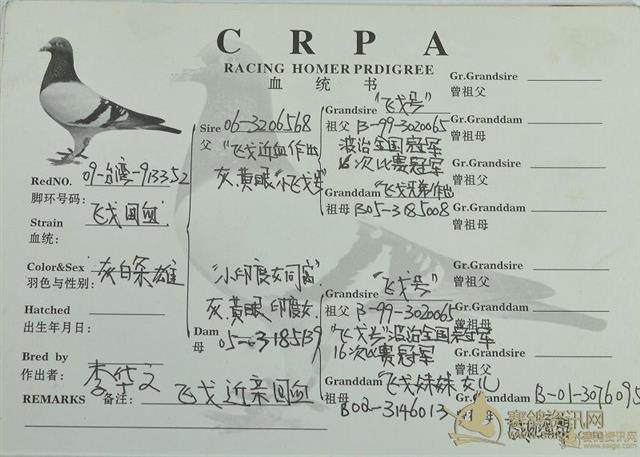 CRPA
RACING HOMER PRDIGREE
血统书
RedNO. 09-台湾-913352
脚环号码:
Strain 飞戈回血
血统:
Color&Sex 灰白条雄
羽色与性别:
Hatched
出生年月日:
Bred by
作出者: 李华文
REMARKS 备注: 飞戈近亲回血
Sire 06-3206568
父 "飞戈近血作出
灰.黄眼"小飞戈号"
"小印度女同窝"
灰.黄眼.印度女.
Dam 05-3185139
母
Grandsire "飞戈号"
祖父 B-99-3020065
波治全国冠军
16次比赛冠军
Granddam "飞戈兄弟作出
祖母 B05-3185008
Grandsire "飞戈号"
祖父 B-99-3020065
"飞戈号"波治全国冠军
16次比赛冠军
Granddam "飞戈妹妹女儿
B02-3146013
Gr.Grandsire
曾祖父
Gr.Granddam
曾祖母
Gr.Grandsire
曾祖父
Gr.Granddam
曾祖母
Gr.Grandsire
曾祖父
Gr.Granddam
曾祖母
Gr.Grandsire
曾祖父
Gr.Granddam B-01-3076095
赛鸽资讯网
www.saige.com